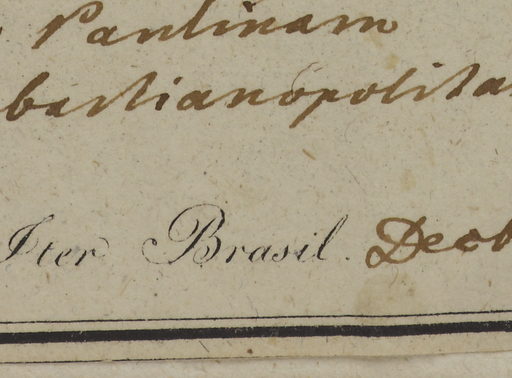 Paulinam
bastianopolita
Iter Brasil. Decb